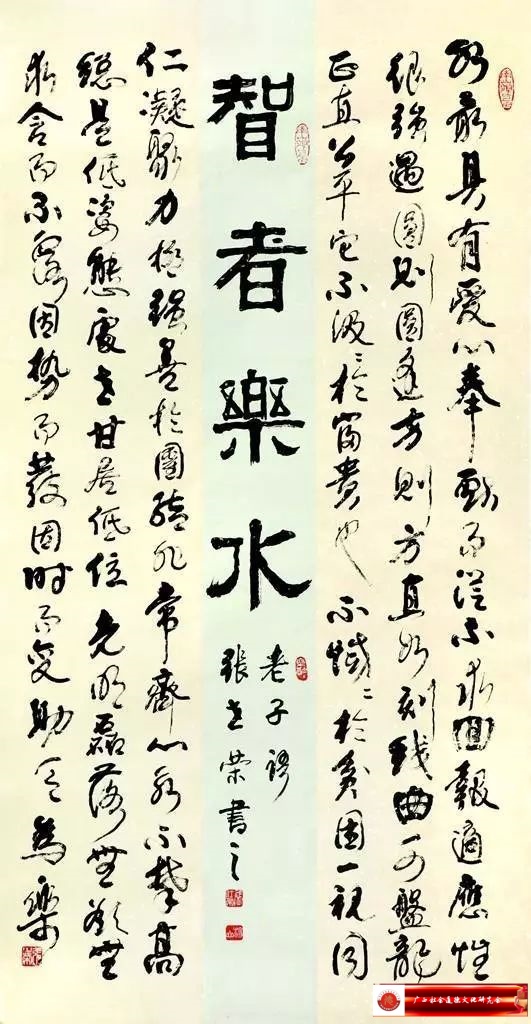 水最具有愛心奉献而從不求回報適應性
很強遇圓則圓逢方則方直如刻线曲可盤龍
正直公平它不汲汲於富貴也不慽慽於貧困一視同
智者樂水
老子
張世榮書之
仁凝聚力極強善於團結非常齊心永不攀高
總是低姿態處世甘居低位光明磊落無欲無
求含而不露因勢而發因時而變助人為樂
广西社会道德文化研究会